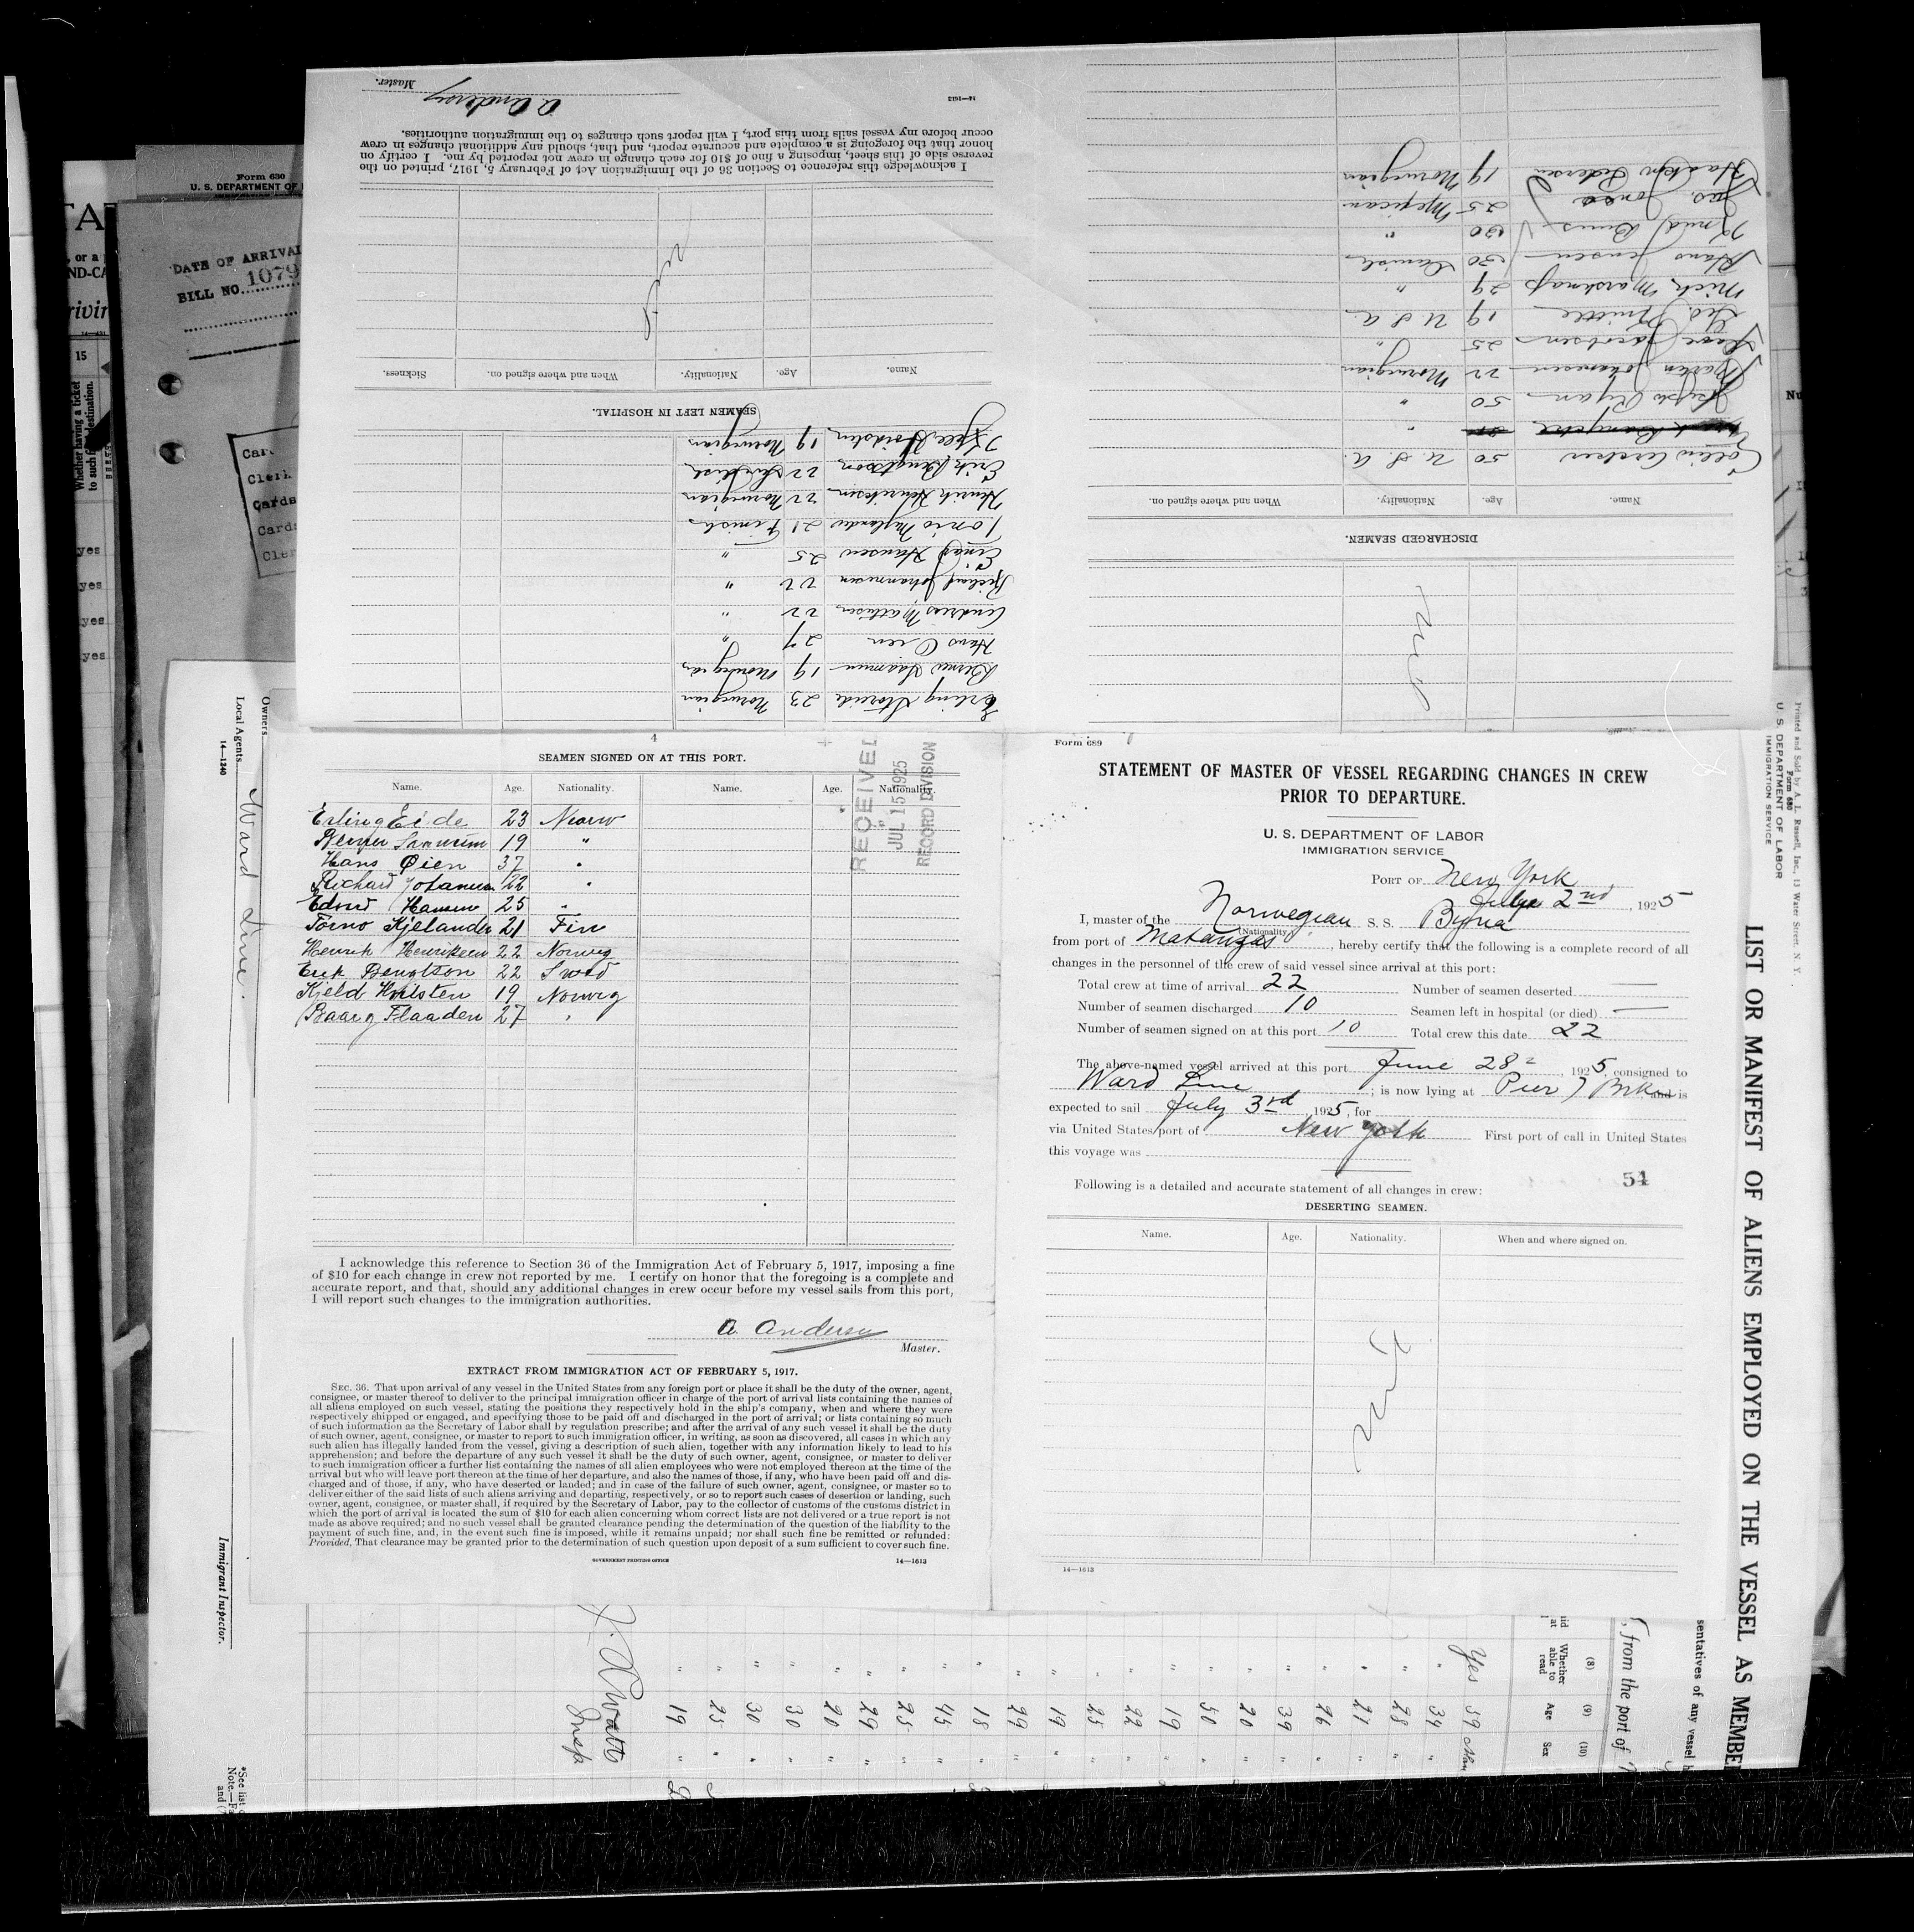 Form 689
STATEMENT OF MASTER OF VESSEL REGARDING CHANGES IN CREW
PRIOR TO DEPARTURE.
U. S. DEPARTMENT OF LABOR
IMMIGRATION SERVICE
PORT OF New York
July 2nd, 1925
I, master of the Norwegian S. S.
(Nationality.)
from port of Matanzas, hereby certify that the following is a complete record of all
changes in the personnel of the crew of said vessel since arrival at this port:
Total crew at time of arrival 22 Number of seamen deserted —
Number of seamen discharged 10 Seamen left in hospital (or died) —
Number of seamen signed on at this port 10 Total crew this date 22
The above-named vessel arrived at this port June 28, 1925, consigned to
Ward Line; is now lying at Pier 7 Brk and is
expected to sail July 3rd, 1925, for
via United States port of New York First port of call in United States
this voyage was
54
Following is a detailed and accurate statement of all changes in crew:
DESERTING SEAMEN.
Name. Age. Nationality. When and where signed on.
14—1613
4
SEAMEN SIGNED ON AT THIS PORT.
RECEIVED
JUL 15 1925
RECORD DIVISION
Name. Age. Nationality. Name. Age. Nationality.
Erling Eide 23
19 "
Hans Øien 37 "
Richard 22 "
Hansen 25 "
Kjelander 21 Fin
Henrik Henriksen 22 Norweg
Erik Bengtson 22 Swed
Kjeld 19 Norweg
Flaaden 27 "
I acknowledge this reference to Section 36 of the Immigration Act of February 5, 1917, imposing a fine
of $10 for each change in crew not reported by me. I certify on honor that the foregoing is a complete and
accurate report, and that, should any additional changes in crew occur before my vessel sails from this port,
I will report such changes to the immigration authorities.
A. Andersen
Master.
EXTRACT FROM IMMIGRATION ACT OF FEBRUARY 5, 1917.
SEC. 36. That upon arrival of any vessel in the United States from any foreign port or place it shall be the duty of the owner, agent,
consignee, or master thereof to deliver to the principal immigration officer in charge of the port of arrival lists containing the names of
all aliens employed on such vessel, stating the positions they respectively hold in the ship's company, when and where they were
respectively shipped or engaged, and specifying those to be paid off and discharged in the port of arrival; or lists containing so much
of such information as the Secretary of Labor shall by regulation prescribe; and after the arrival of any such vessel it shall be the duty
of such owner, agent, consignee, or master to report to such immigration officer, in writing, as soon as discovered, all cases in which any
such alien has illegally landed from the vessel, giving a description of such alien, together with any information likely to lead to his
apprehension; and before the departure of any such vessel it shall be the duty of such owner, agent, consignee, or master to deliver
to such immigration officer a further list containing the names of all alien employees who were not employed thereon at the time of the
arrival but who will leave port thereon at the time of her departure, and also the names of those, if any, who have been paid off and dis-
charged and of those, if any, who have deserted or landed; and in case of the failure of such owner, agent, consignee, or master so to
deliver either of the said lists of such aliens arriving and departing, respectively, or so to report such cases of desertion or landing, such
owner, agent, consignee, or master shall, if required by the Secretary of Labor, pay to the collector of customs of the customs district in
which the port of arrival is located the sum of $10 for each alien concerning whom correct lists are not delivered or a true report is not
made as above required; and no such vessel shall be granted clearance pending the determination of the question of the liability to the
payment of such fine, and, in the event such fine is imposed, while it remains unpaid; nor shall such fine be remitted or refunded:
Provided, That clearance may be granted prior to the determination of such question upon deposit of a sum sufficient to cover such fine.
GOVERNMENT PRINTING OFFICE 14—1613
DISCHARGED SEAMEN.
Name. Age. Nationality. When and where signed on.
50 U. S. A.
Ryan 50 "
Johannesen 22 Norwegian
Jacobsen 25 "
Geo. 19 U S A.
Mich. 29 "
Hans Jensen 30 Danish
Knud 30 "
Jas. Jones 25 Mexican
Haakon Pedersen 19 Norwegian
Erling 23 Norwegian
19 Norwegian
Hans Oien 27 "
Andreas 22 "
Richard Johannesen 22 "
Hansen 25 "
21 Finish
Henrik Henriksen 22 Norwegian
Erik Bengtsson 22 Swedish
19 Norwegian
SEAMEN LEFT IN HOSPITAL.
Name. Age. Nationality. When and where signed on. Sickness.
I acknowledge this reference to Section 36 of the Immigration Act of February 5, 1917, printed on the
reverse side of this sheet, imposing a fine of $10 for each change in crew not reported by me. I certify on
honor that the foregoing is a complete and accurate report, and that, should any additional changes in crew
occur before my vessel sails from this port, I will report such changes to the immigration authorities.
A. Andersen
Master.
14—1613
Form 630
U. S. DEPARTMENT OF
DATE OF ARRIVAL
BILL NO. 1079
15
Whether having a ticket
to such final destination.
yes
yes
yes
yes
Owners
Local Agents Ward Line.
14—1240
Immigrant Inspector.
Printed and Sold by A. L. Russell, Inc., 13 Water Street, N. Y.
Form 680
U. S. DEPARTMENT OF LABOR
IMMIGRATION SERVICE
LIST OR MANIFEST OF ALIENS EMPLOYED ON THE VESSEL AS MEMBE
sentatives of any vessel
, from the port of
(8) (9) (10)
Whether able to read Age Sex
Yes 59
" 34 "
" 28 "
" 27 "
" 26 "
" 39 "
" 20 "
" 50 "
" 19 "
" 22 "
" 25 "
" 19 "
" 29 "
" 18 "
" 45 "
" 25 "
" 29 "
" 20 "
" 30 "
" 30 "
" 25 "
" 19 "
Insp